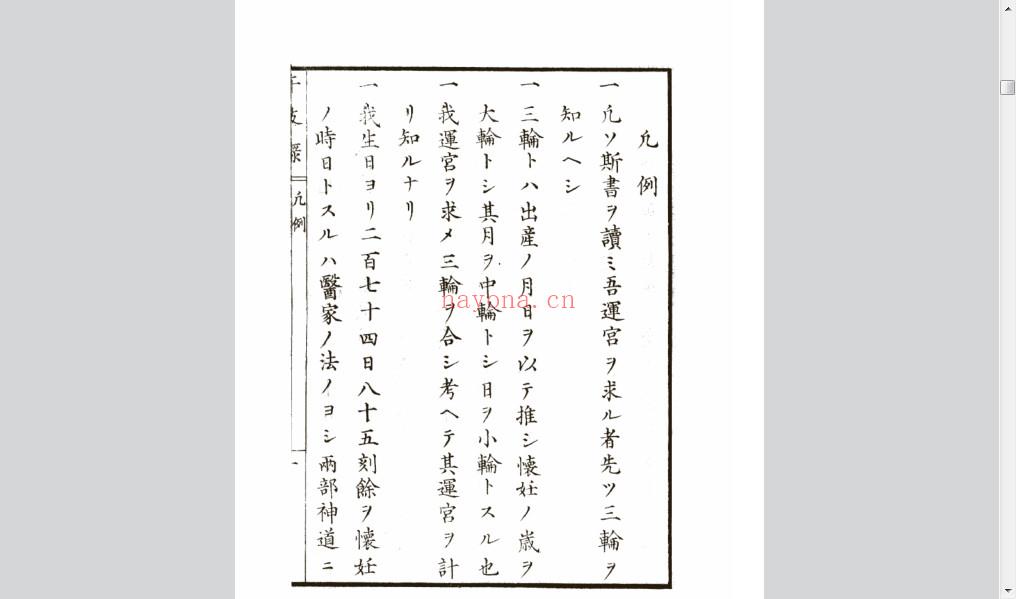 凡例
一凡ソ斯書ヲ讀ミ吾運宮ヲ求ル者先ツ三輪ヲ
知ルヘシ
一三輪トハ出産ノ月日ヲ以テ推シ懐妊ノ歳ヲ
大輪トシ其月ヲ中輪トシ日ヲ小輪トスル也
一我運宮ヲ求メ三輪ヲ合シ考ヘテ其運宮ヲ計
リ知ルナリ
一我生日ヨリ二百七十四日八十五刻餘ヲ懐妊
ノ時日トスルハ醫家ノ法ノヨシ兩部神道ニ
凡例
一
nayona.cn